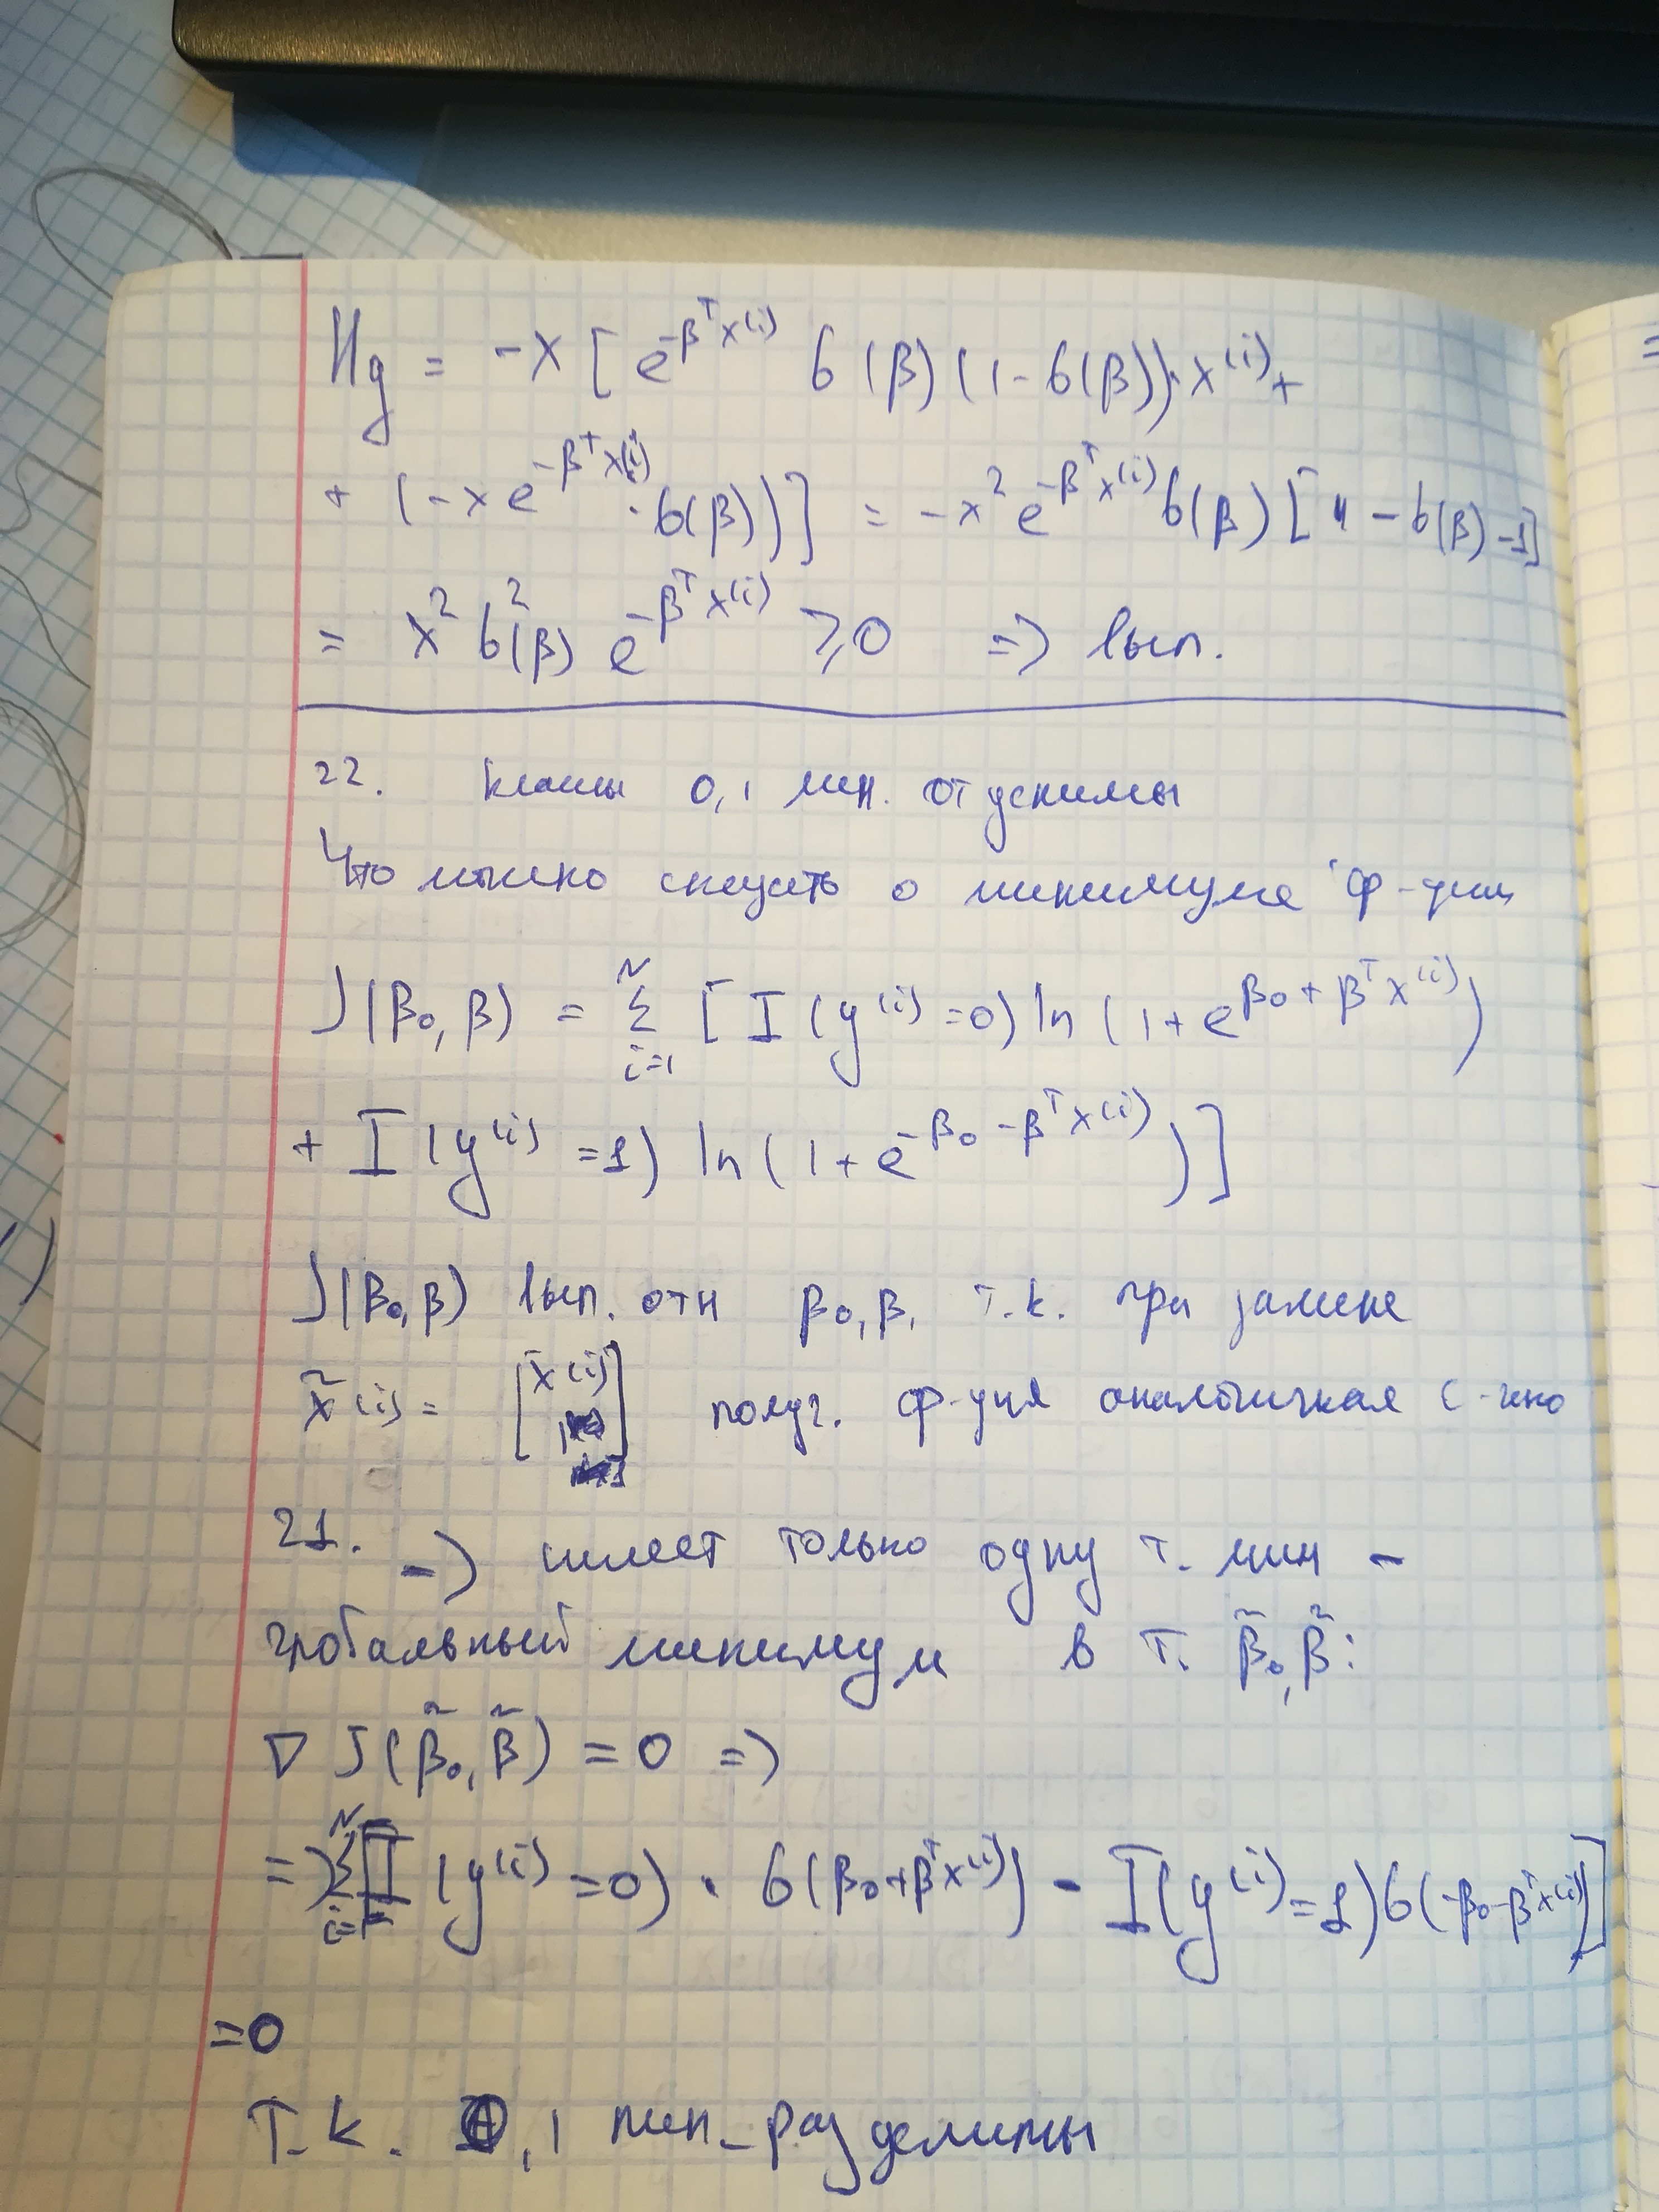 H_g = -x [ e^{-β^T x^{(i)}} б(β)(1-б(β))·x^{(i)} +
+ (-x e^{-β^T x^{(i)}} · б(β)) ] = -x² e^{-β^T x^{(i)}} б(β) [ 1 - б(β) - 1 ]
= x² б²(β) e^{-β^T x^{(i)}} ⩾ 0 => вып.
22. Классы 0,1 лин. отделимы
Что можно сказать о минимуме ф-ции
J(β₀, β) = Σ_{i=1}^{N} [ I(y^{(i)} = 0) ln(1 + e^{β₀ + β^T x^{(i)}})
+ I(y^{(i)} = 1) ln(1 + e^{-β₀ - β^T x^{(i)}}) ]
J(β₀, β) вып. отн β₀, β, т.к. при замене
x̃^{(i)} = [ x^{(i)} 1 ] получ. ф-ция аналогичная с-но
21. => имеет только одну т. мин -
глобальный минимум в т. β̃₀, β̃:
∇ J(β̃₀, β̃) = 0 =>
=> Σ_{i=1}^{N} [ I(y^{(i)} = 0) · б(β₀ + β^T x^{(i)}) - I(y^{(i)} = 1) б(-β₀ - β^T x^{(i)}) ]
= 0
Т.к. 0, 1 лин. разделимы